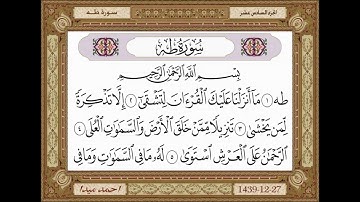 الجزء السادس عشر
سورة طه
سُورَةُ طه
بِسْمِ اللَّهِ الرَّحْمَٰنِ الرَّحِيمِ
طه ١ مَا أَنزَلْنَا عَلَيْكَ الْقُرْءَانَ لِتَشْقَىٰٓ ٢ إِلَّا تَذْكِرَةً
لِّمَن يَخْشَىٰ ٣ تَنزِيلًا مِّمَّنْ خَلَقَ الْأَرْضَ وَالسَّمَٰوَٰتِ الْعُلَى ٤
الرَّحْمَٰنُ عَلَى الْعَرْشِ اسْتَوَىٰ ٥ لَهُۥ مَا فِي السَّمَٰوَٰتِ وَمَا فِي
1439-12-27